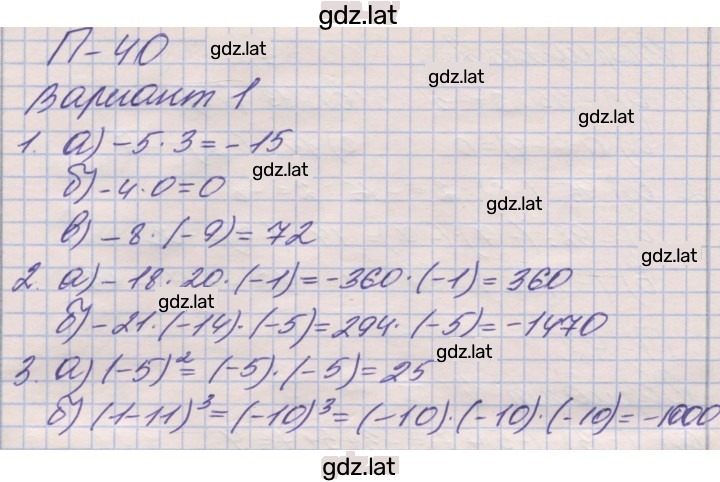 gdz.lat
П-40 gdz.lat
gdz.lat
Вариант 1
gdz.lat
1. а) -5·3=-15
gdz.lat
б) -4·0=0
gdz.lat
в) -8·(-9)=72
gdz.lat
2. а) -18·20·(-1)=-360·(-1)=360
gdz.lat
б) -21·(-14)·(-5)=294·(-5)=-1470
gdz.lat
3. а) (-5)²=(-5)·(-5)=25
б) (1-11)³=(-10)³=(-10)·(-10)·(-10)=-1000
gdz.lat